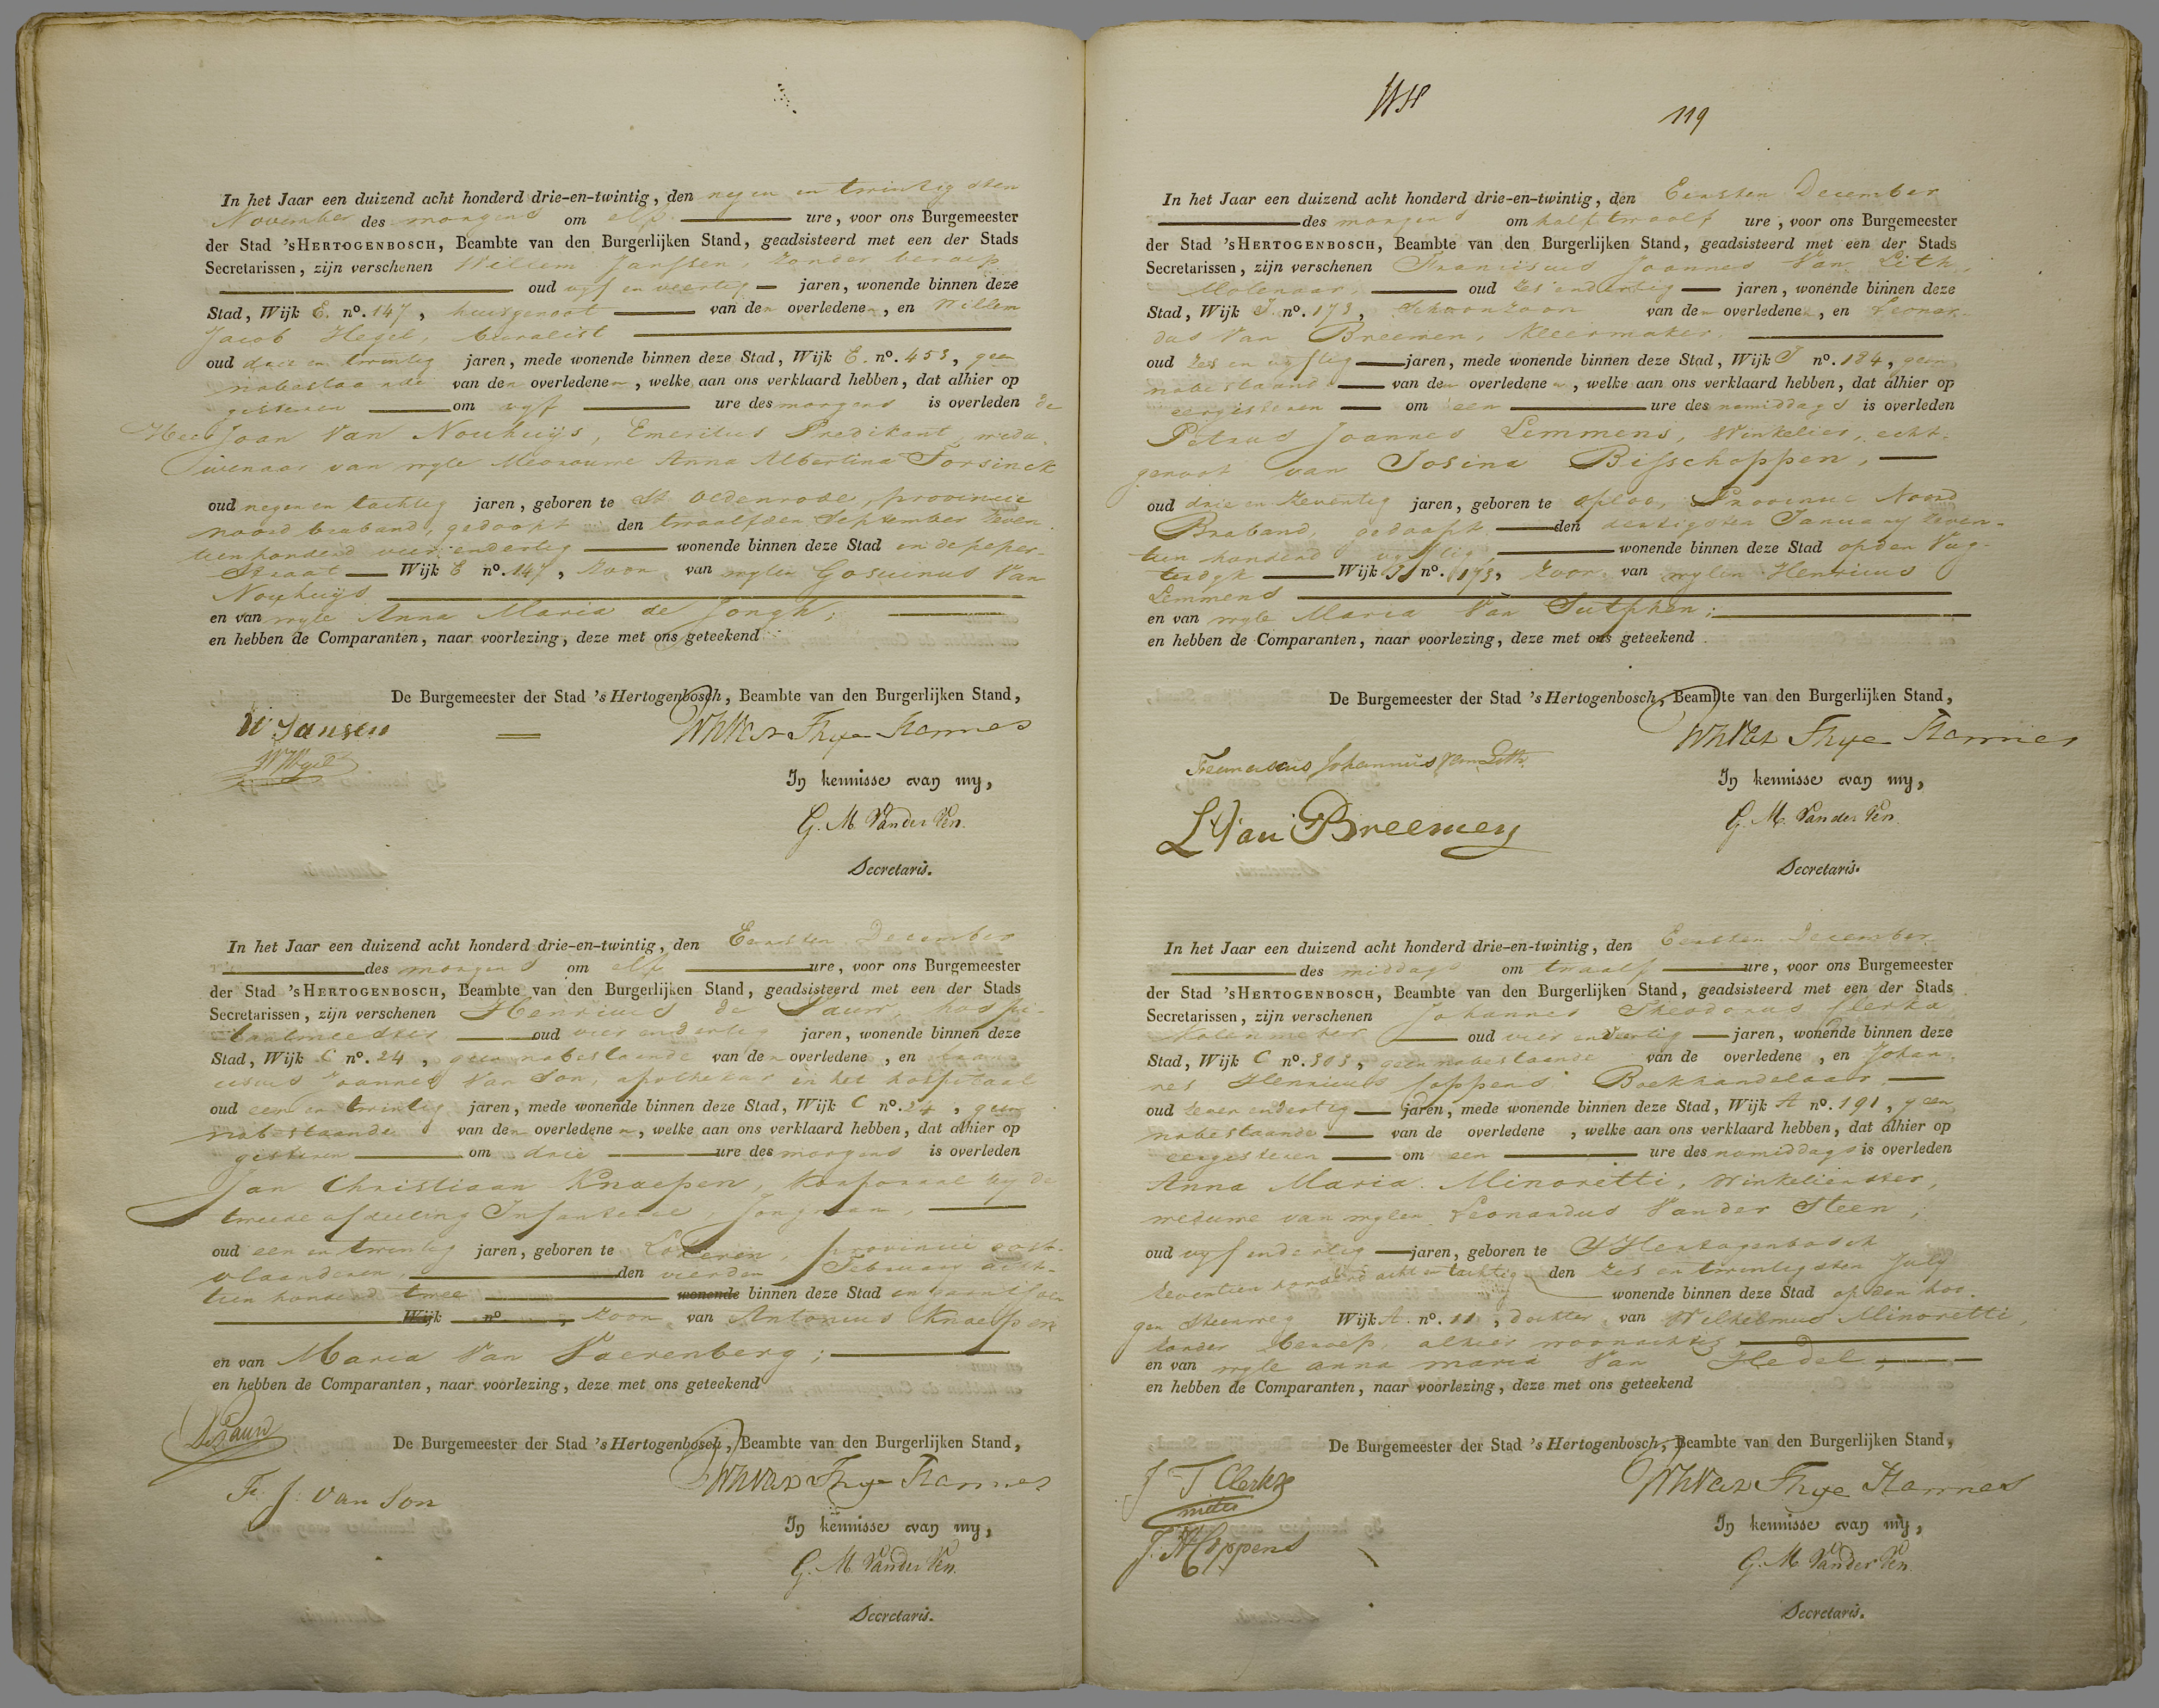 In het Jaar een duizend acht honderd drie-en-twintig, den negen en twintig sten
November des morgens om elf ure, voor ons Burgemeester
der Stad 'sHERTOGENBOSCH, Beambte van den Burgerlijken Stand, geadsisteerd met een der Stads
Secretarissen, zijn verschenen Willem Janssen, zonder beroep
oud vyf en veertig jaren, wonende binnen deze
Stad, Wijk E. nº. 147, huisgenoot van den overledenen, en Willem
Jacob Hegel,
oud drie en twintig jaren, mede wonende binnen deze Stad, Wijk E. nº. 453, geen
nabestaande van den overledenen, welke aan ons verklaard hebben, dat alhier op
gisteren om vyf ure des morgens is overleden de
Heer Joan Van Nouhuijs, Emeritus Predikant, wedu-
wenaar van wyle Mevrouwe Anna Albertina Torsinck
oud negen en tachtig jaren, geboren te St Oedenrode, provincie
noord braband, gedoopt den twaalfden September zeven
tien honderd vier en dertig wonende binnen deze Stad in de peper-
Straat Wijk E nº. 147, zoon van wylen Gosuinus Van
Nouhuijs
en van wyle Anna Maria de Jongh;
en hebben de Comparanten, naar voorlezing, deze met ons geteekend
De Burgemeester der Stad 's Hertogenbosch, Beambte van den Burgerlijken Stand,
W Jansen
In kennisse van my,
G. M. Vander Ven.
Secretaris.
In het Jaar een duizend acht honderd drie-en-twintig, den Eersten December
des morgens om elf ure, voor ons Burgemeester
der Stad 'sHERTOGENBOSCH, Beambte van den Burgerlijken Stand, geadsisteerd met een der Stads
Secretarissen, zijn verschenen Henricus de hospi-
taalmeester oud vier en dertig jaren, wonende binnen deze
Stad, Wijk C nº. 24, geen nabestaande van den overledene, en Franc
iscus Joannes Van Son, apotheker in het hospitaal
oud een en twintig jaren, mede wonende binnen deze Stad, Wijk C nº. 24, geen
nabestaande van den overledenen, welke aan ons verklaard hebben, dat alhier op
gisteren om drie ure des morgens is overleden
Jan Christiaan Knaepen, Korporaal by de
tweede afdeeling Infanterie, jongman,
oud een en twintig jaren, geboren te Lokeren, provincie oost-
vlaanderen, den vierden February acht-
tien honderd twee wonende binnen deze Stad in garnisoen
Wijk nº. , zoon van Antonius Knaepen
en van Maria Van Vaerenberg;
en hebben de Comparanten, naar voorlezing, deze met ons geteekend
De Burgemeester der Stad 's Hertogenbosch, Beambte van den Burgerlijken Stand,
Fr. J. Van Son
In kennisse van my,
G. M. Vander Ven.
Secretaris.
119
In het Jaar een duizend acht honderd drie-en-twintig, den Eersten December
des morgens om half twaalf ure, voor ons Burgemeester
der Stad 'sHERTOGENBOSCH, Beambte van den Burgerlijken Stand, geadsisteerd met een der Stads
Secretarissen, zijn verschenen Franciscus Joannes Van Lith,
Molenaar, oud zes en dertig jaren, wonende binnen deze
Stad, Wijk J. nº. 173, Schoonzoon van den overledenen, en Leonar-
dus Van Breemen, Kleermaker,
oud zes en vyftig jaren, mede wonende binnen deze Stad, Wijk J nº. 184, geen
nabestaande van den overledenen, welke aan ons verklaard hebben, dat alhier op
eergisteren om een ure des namiddags is overleden
Petrus Joannes Lemmens, Winkelier, echt-
genoot van Josina Bisschoppen,
oud drie en zeventig jaren, geboren te oploo, Provincie Noord
Braband, gedoopt den dertigsten January zeven-
tien honderd vyftig wonende binnen deze Stad op den Vug-
terdyk Wijk J nº. 173, zoon van wylen Henricus
Lemmens
en van wyle Maria Van Sutphen;
en hebben de Comparanten, naar voorlezing, deze met ons geteekend
De Burgemeester der Stad 's Hertogenbosch, Beambte van den Burgerlijken Stand,
Johannus Van Lith
L Van Breemen
In kennisse van my,
G. M. Vander Ven.
Secretaris.
In het Jaar een duizend acht honderd drie-en-twintig, den Eersten December
des middags om twaalf ure, voor ons Burgemeester
der Stad 'sHERTOGENBOSCH, Beambte van den Burgerlijken Stand, geadsisteerd met een der Stads
Secretarissen, zijn verschenen Johannes Theodorus Clerkx
oud vier en veertig jaren, wonende binnen deze
Stad, Wijk C nº. 303, geen nabestaande van de overledene, en Johan-
nes Henricus Coppens Boekhandelaar,
oud zeven en dertig jaren, mede wonende binnen deze Stad, Wijk A nº. 191, geen
nabestaande van de overledene, welke aan ons verklaard hebben, dat alhier op
eergisteren om een ure des namiddags is overleden
Anna Maria Minoretti, Winkelierster,
weduwe van wylen Leonardus Vander Steen,
oud vyf en dertig jaren, geboren te SHertogenbosch
zeventien honderd acht en tachtig den zes en twintigsten July
wonende binnen deze Stad op den hoo-
gen Steenweg Wijk A. nº. 11, dochter van Wilhelmus Minoretti,
zonder beroep, alhier woonachtig
en van wyle anna maria Van Hedel,
en hebben de Comparanten, naar voorlezing, deze met ons geteekend
De Burgemeester der Stad 's Hertogenbosch, Beambte van den Burgerlijken Stand,
J T Clerkx
J. H Coppens
In kennisse van my,
G. M. Vander Ven.
Secretaris.